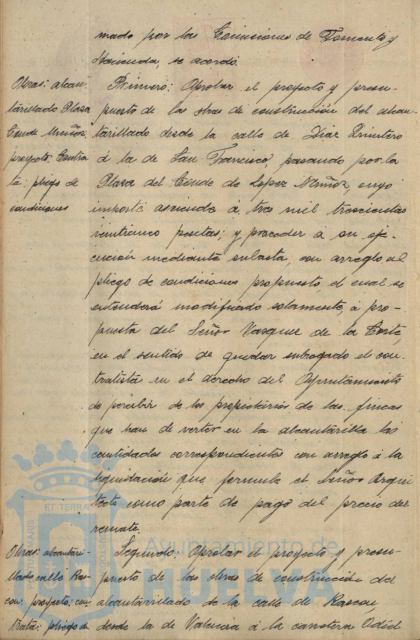 mado por las Comisiones de Fomento y
Hacienda, se acordó:
Obras: alcan-
tarillado Plaza
Conde Muñoz,
proyecto. Contra-
ta: pliego de
condiciones
Primero: Aprobar el proyecto y presu-
puesto de las obras de construcción del alcan-
tarillado desde la calle de Díaz Quintero
á la de San Francisco, pasando por la
Plaza del Conde de Lopez Muñoz, cuyo
importe asciende a tres mil trescientas
veinticinco pesetas; y proceder á su eje-
cución mediante subasta, con arreglo al
pliego de condiciones propuesto, el cual se
entenderá modificado solamente, á pro-
puesta del Señor Vazquez de la Corte
en el sentido de quedar subrogado el con-
tratista en el derecho del Ayuntamiento
de percibir de los propietarios de las fincas
que han de verter en la alcantarilla las
cantidades correspondientes con arreglo á la
liquidación que formule el Señor Arqui-
tecto como parte de pago del precio del
remate.
Obras: alcantari-
llado calle Ras-
con, proyecto; con-
trata: pliego de
Segundo: Aprobar el proyecto y presu-
puesto de las obras de construcción del
alcantarillado de la calle de Rascon
desde la de Valencia á la carretera Odiel
Ayuntamiento de
HUELVA